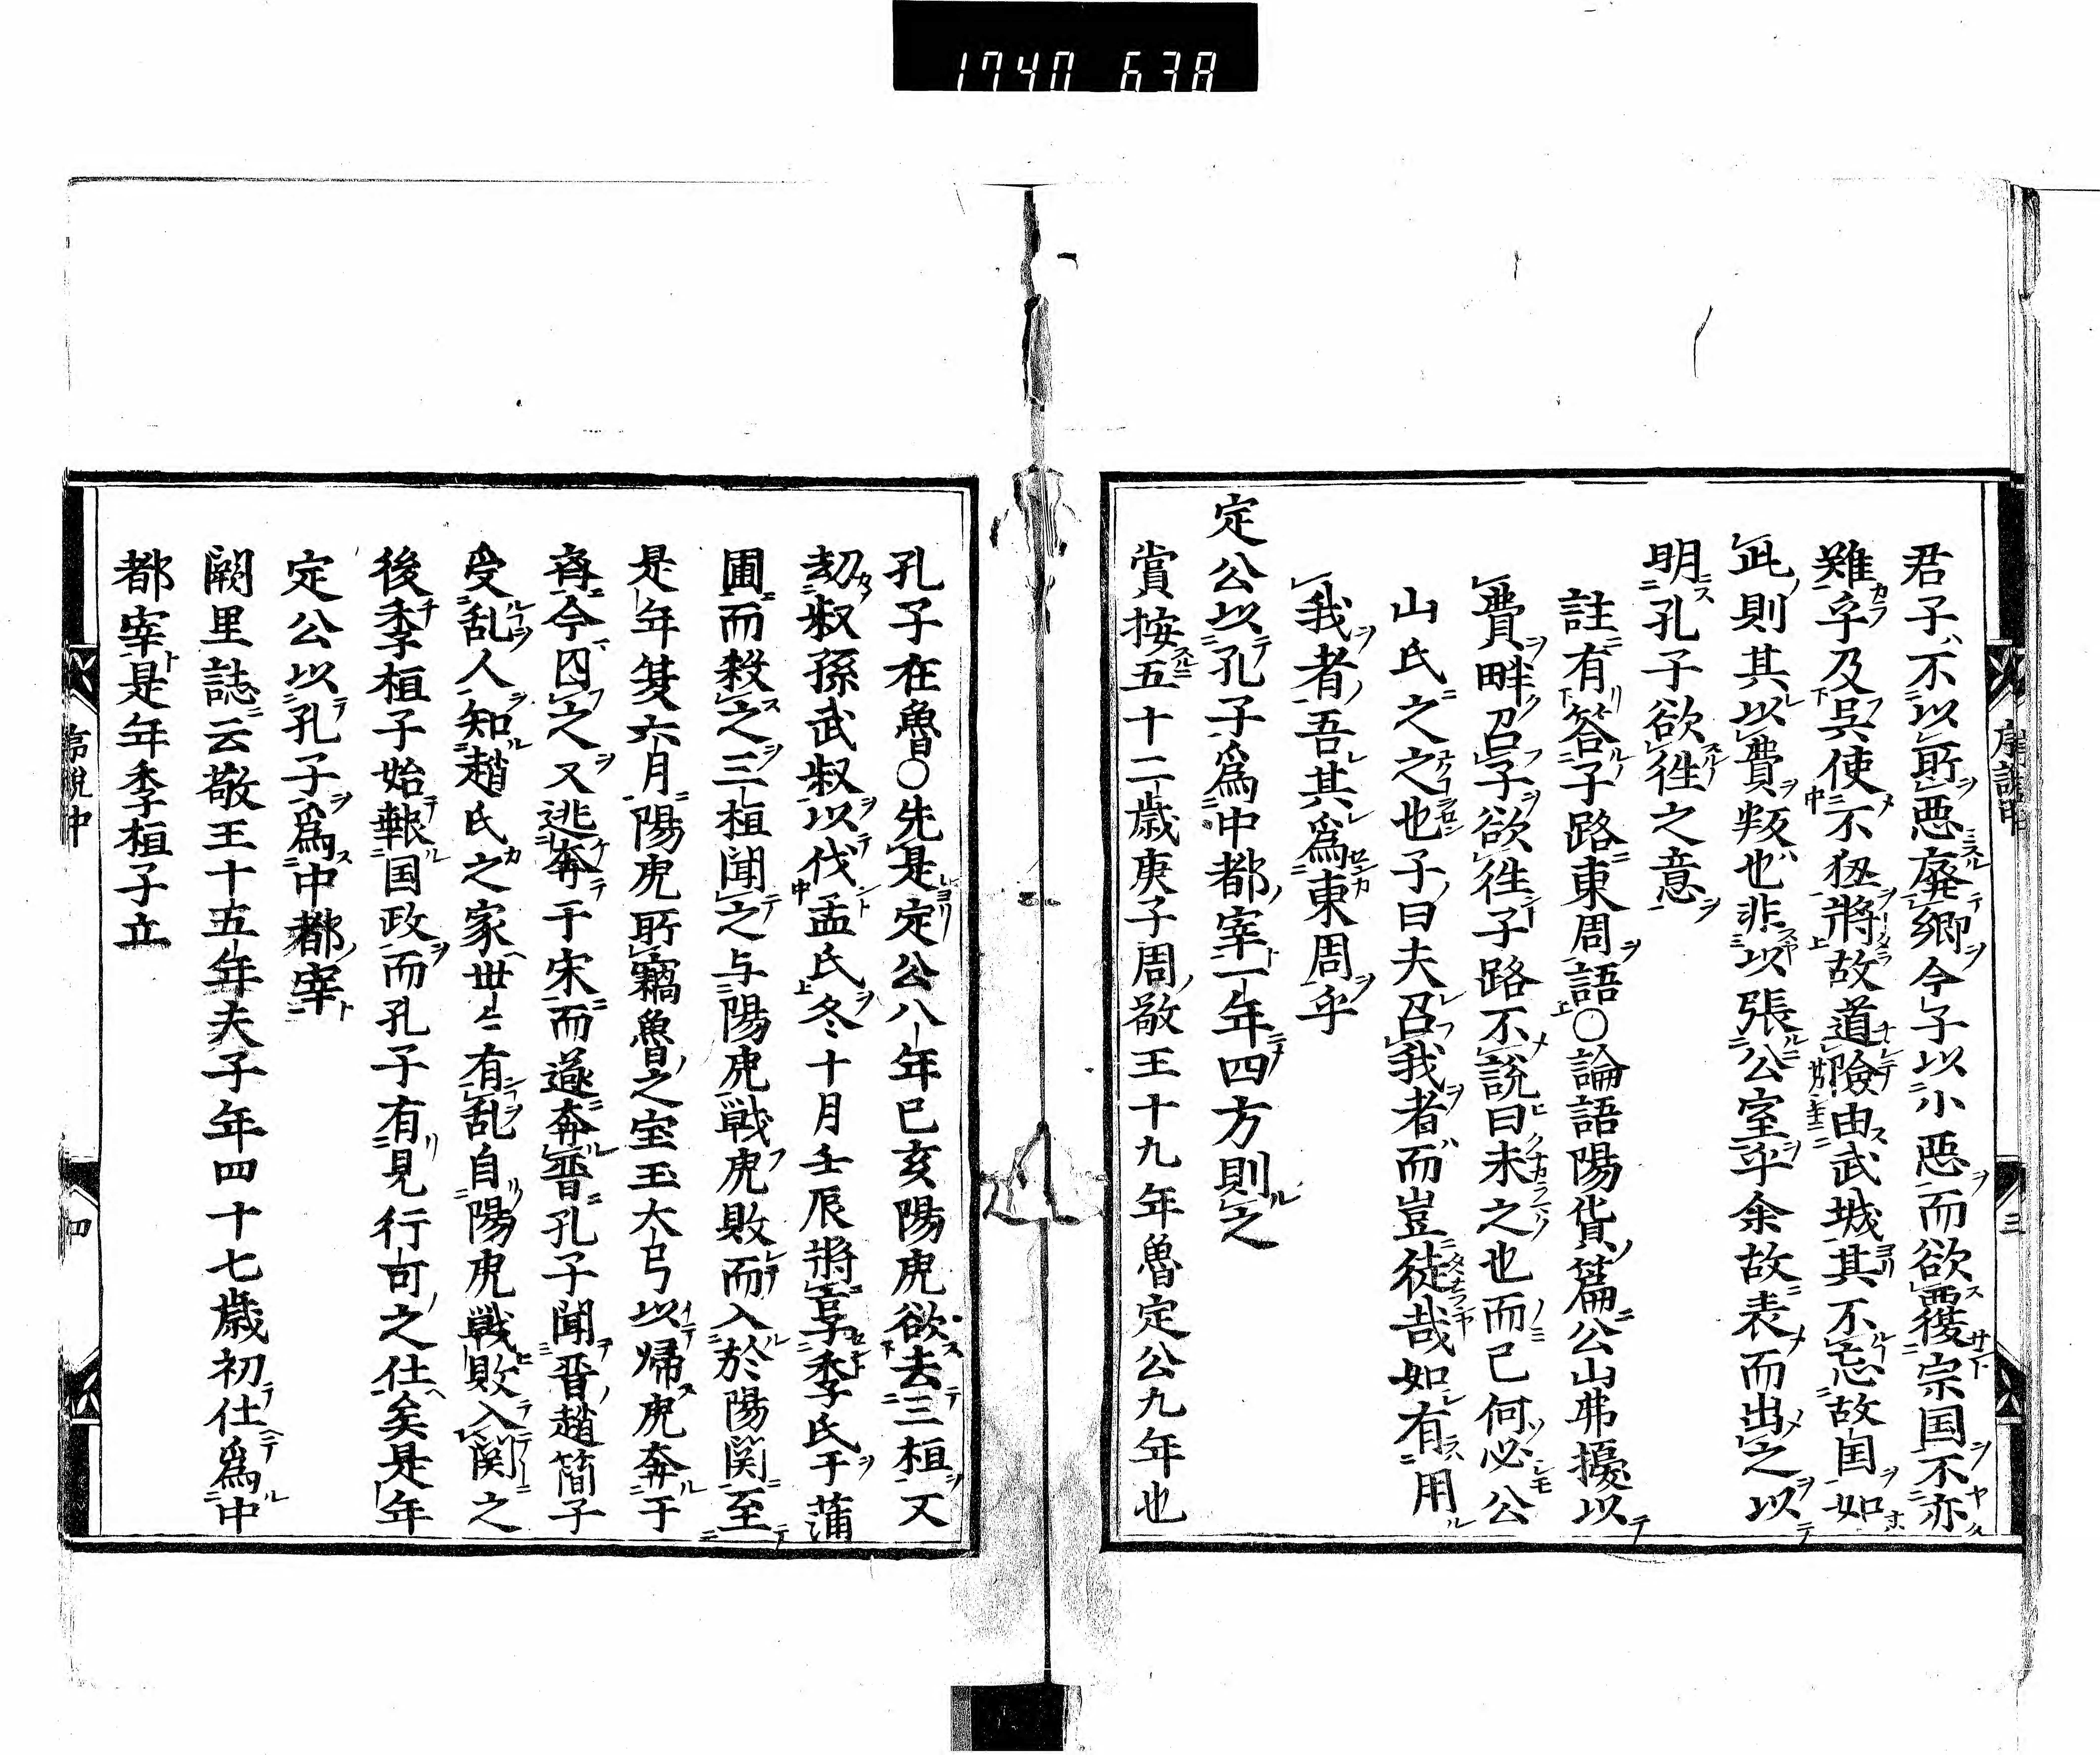 1740 638
君子不以所悪廃郷今子以小悪而欲覆宗国不亦
難乎及呉使不狃將故道險由武城其不忘故国如
此則其以費叛也非以張公室乎余故表而出之以
明孔子欲徃之意
註有答子路東周語〇論語陽貨篇公山弗擾以
費畔召子欲徃子路不説曰未之也而已何必公
山氏之之也子曰夫召我者而豈徒哉如有用
我者吾其爲東周乎
定公以孔子爲中都宰一年四方則之
嘗按五十二歳庚子周敬王十九年魯定公九年也
孔子在魯〇先是定公八年己亥陽虎欲去三桓又
劫叔孫武叔以伐孟氏冬十月壬辰將享季氏于蒲
圃而殺之三桓聞之与陽虎戦虎敗而入於陽関至
是年夏六月陽虎所竊魯之宝玉大弓以帰虎奔于
斉今囚之又逃奔于宋而遂奔晋孔子聞晋趙簡子
受乱人知趙氏之家世〻有乱自陽虎戦敗入関之
後季桓子始報国政而孔子有見行可之仕矣是年
定公以孔子爲中都宰
闕里誌云敬王十五年夫子年四十七歳初仕爲中
都宰是年季桓子立
四